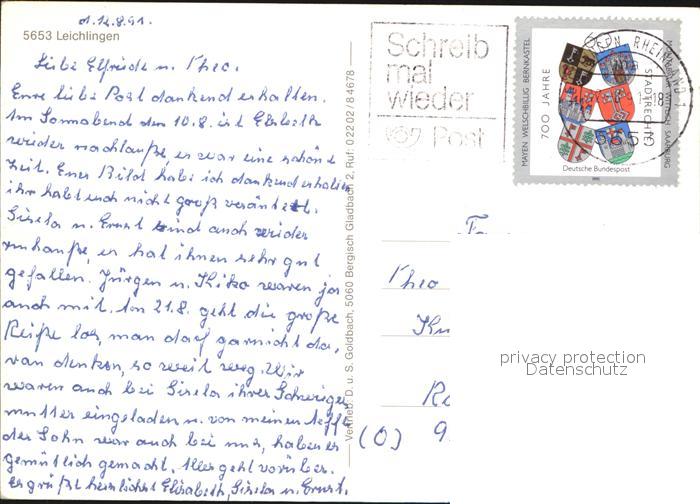 d. 12.8.91.
5653 Leichlingen
Liebe Elfriede u. Theo.
Eure liebe Post dankend erhalten.
Am Sonnabend den 10.8. ist Elsbeth
wieder nachhauße, es war eine schöne
Zeit. Euer Bild habe ich dankend erhalten
ihr habt euch nicht groß verändert.
Gisela u. Ernst sind auch wieder
zuhauße, es hat ihnen sehr gut
gefallen. Jürgen u. Kiko waren ja
auch mit. Am 21.8. geht die große
Reiße los, man darf garnicht da,
ran denken, so weit weg. Wir
waren auch bei Gisela ihrer Schwieger
mutter eingeladen u. von meiner
der Sohn war auch bei uns, haben es
gemütlich gemacht. Alles geht vorüber.
Es grüßt herzlichst Elisabeth, Gisela u. Ernst.
Vertrieb: D. u. S. Goldbach, 5060 Bergisch Gladbach 2, Ruf: 0 22 02 / 8 46 78
Schreib
mal
wieder
Post
700 JAHRE
STADTRECHTE
MAYEN WELSCHBILLIG BERNKASTEL
MONTABAUR WITTLICH SAARBURG
Deutsche Bundespost
5653
Theo
(O)
privacy protection
Datenschutz